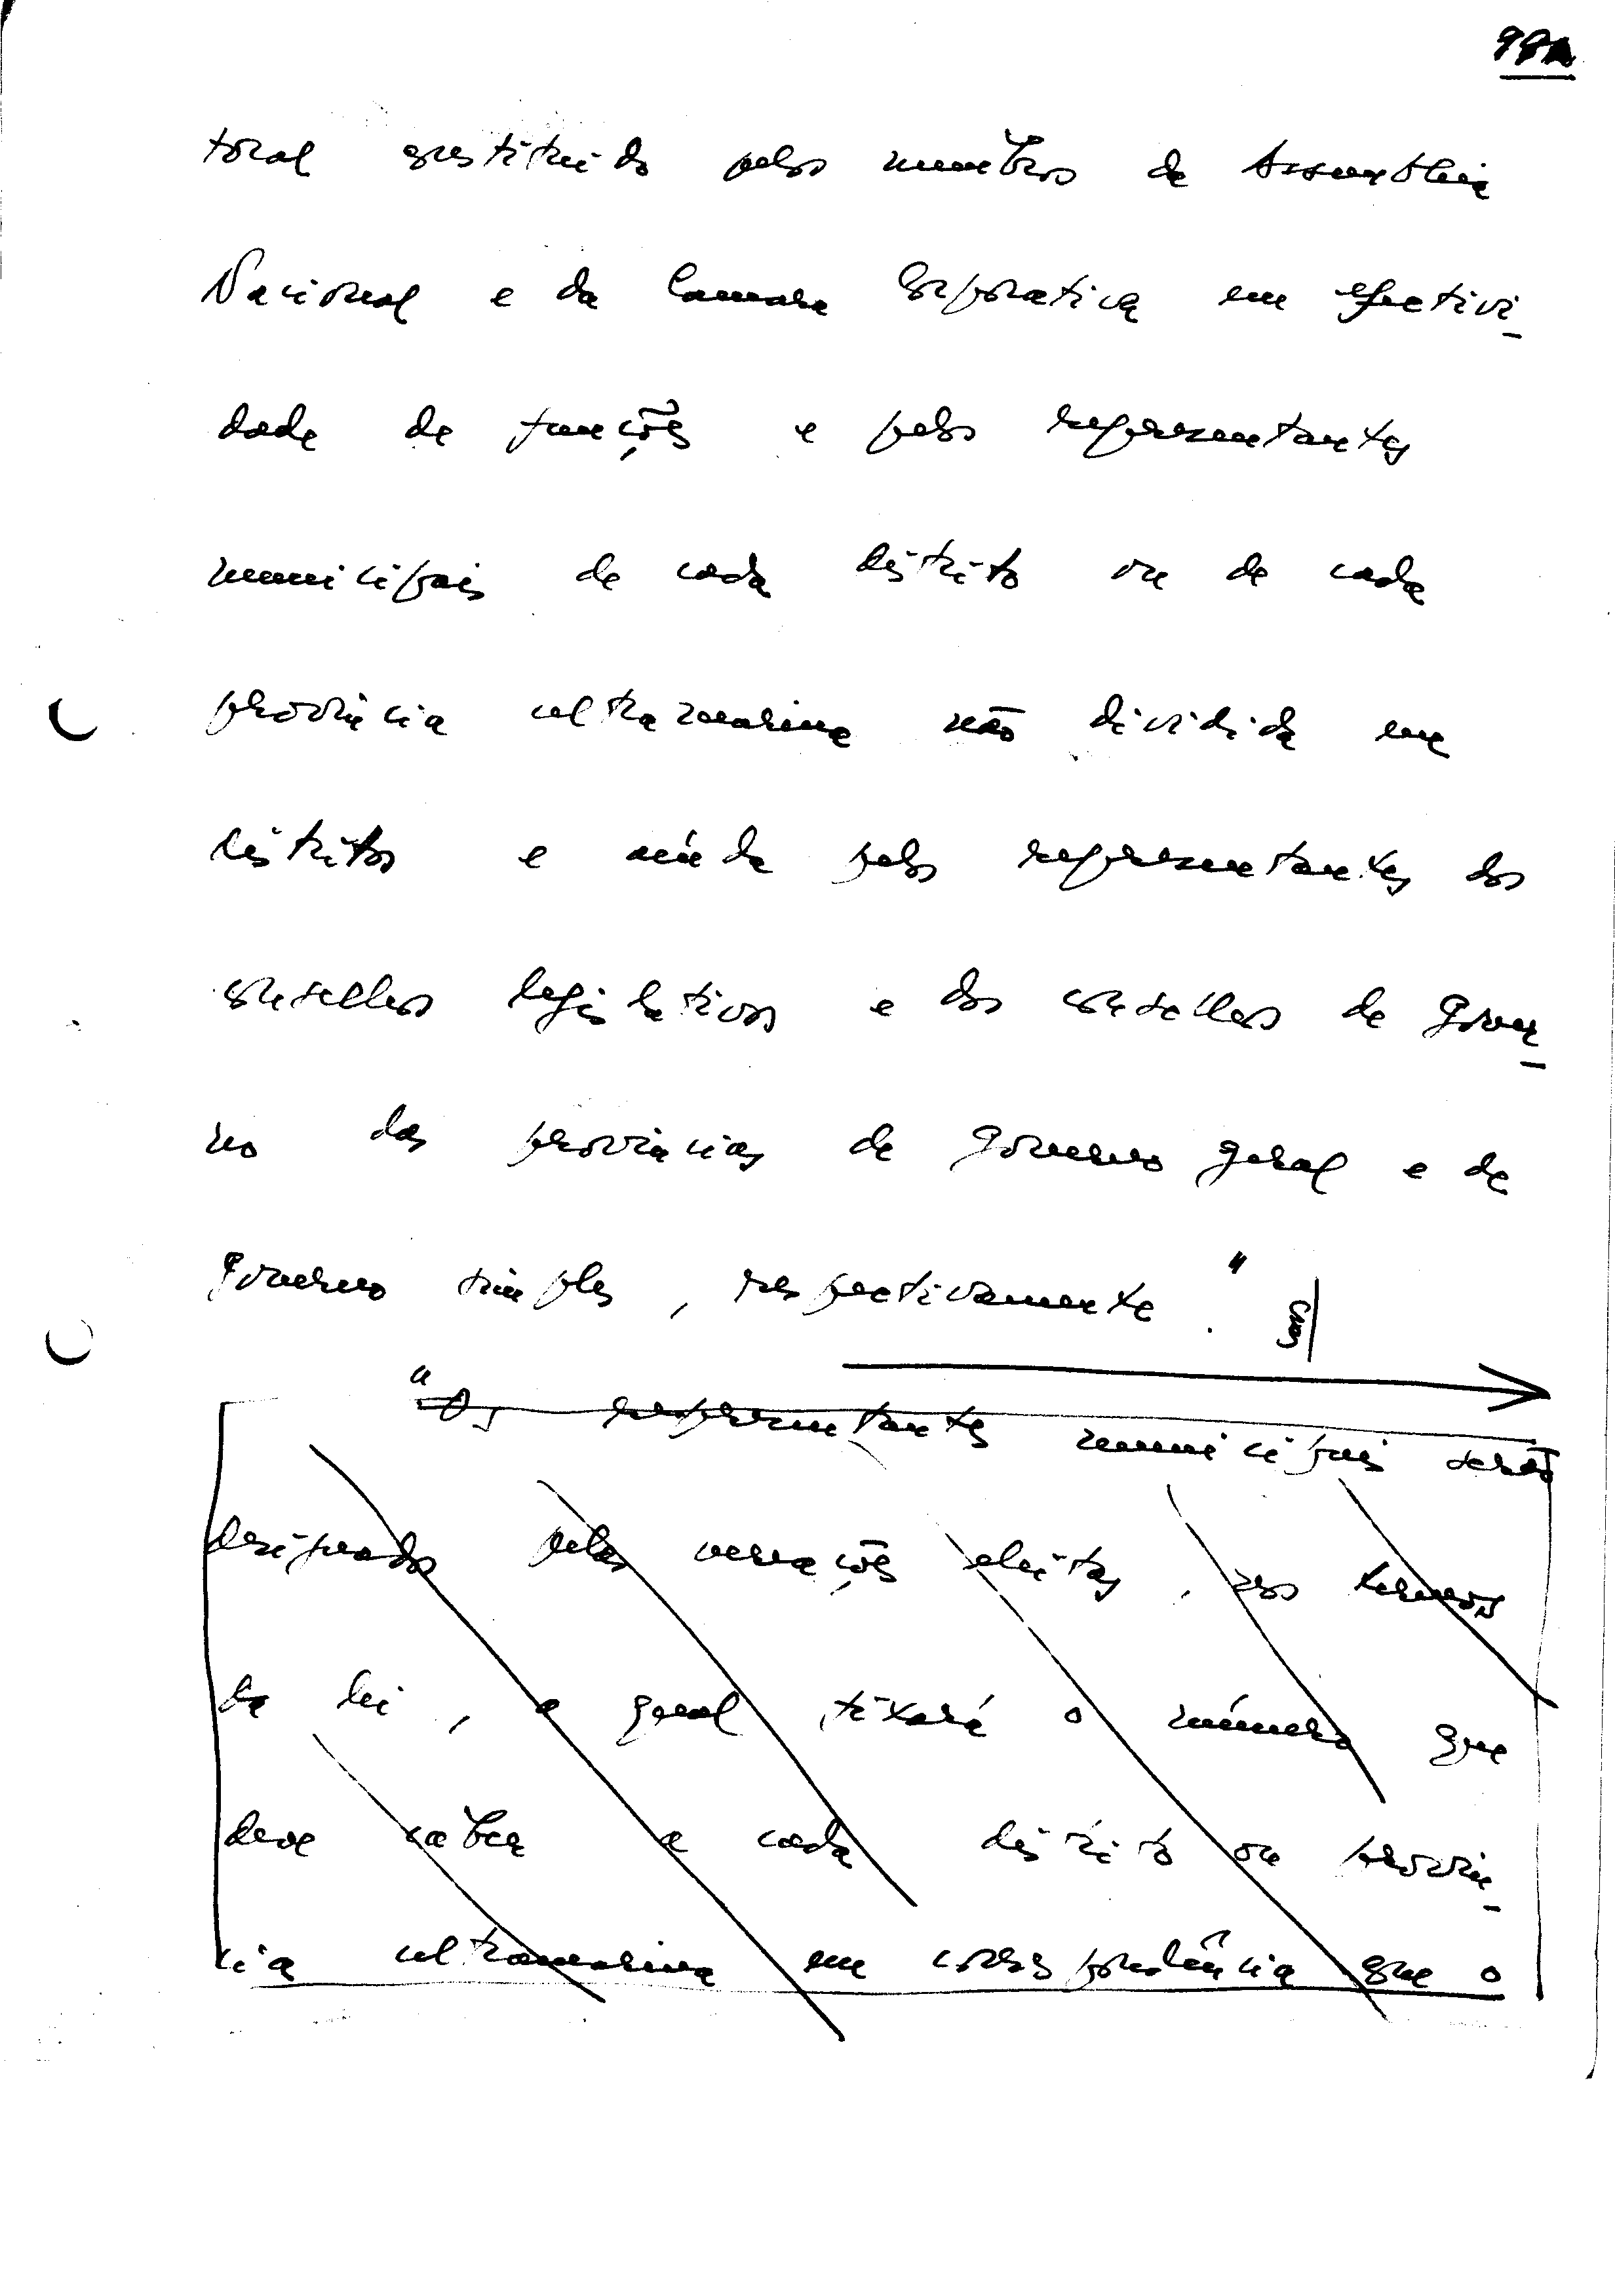 toral constituído pelos membros da Assembleia
Nacional e da Camara Corporativa em efectivi-
dade de funções e pelos representantes
municipais de cada distrito ou de cada
província ultramarina não dividida em
distritos e ainda pelos representantes dos
conselhos legislativos e dos conselhos de gover-
no das províncias de governo geral e de
governo simples, respectivamente."
"Os representantes municipais serão
designados pelas vereações eleitas, nos termos
da lei, a qual fixará o número que
deve caber a cada distrito ou provín-
cia ultramarina em correspondência que o